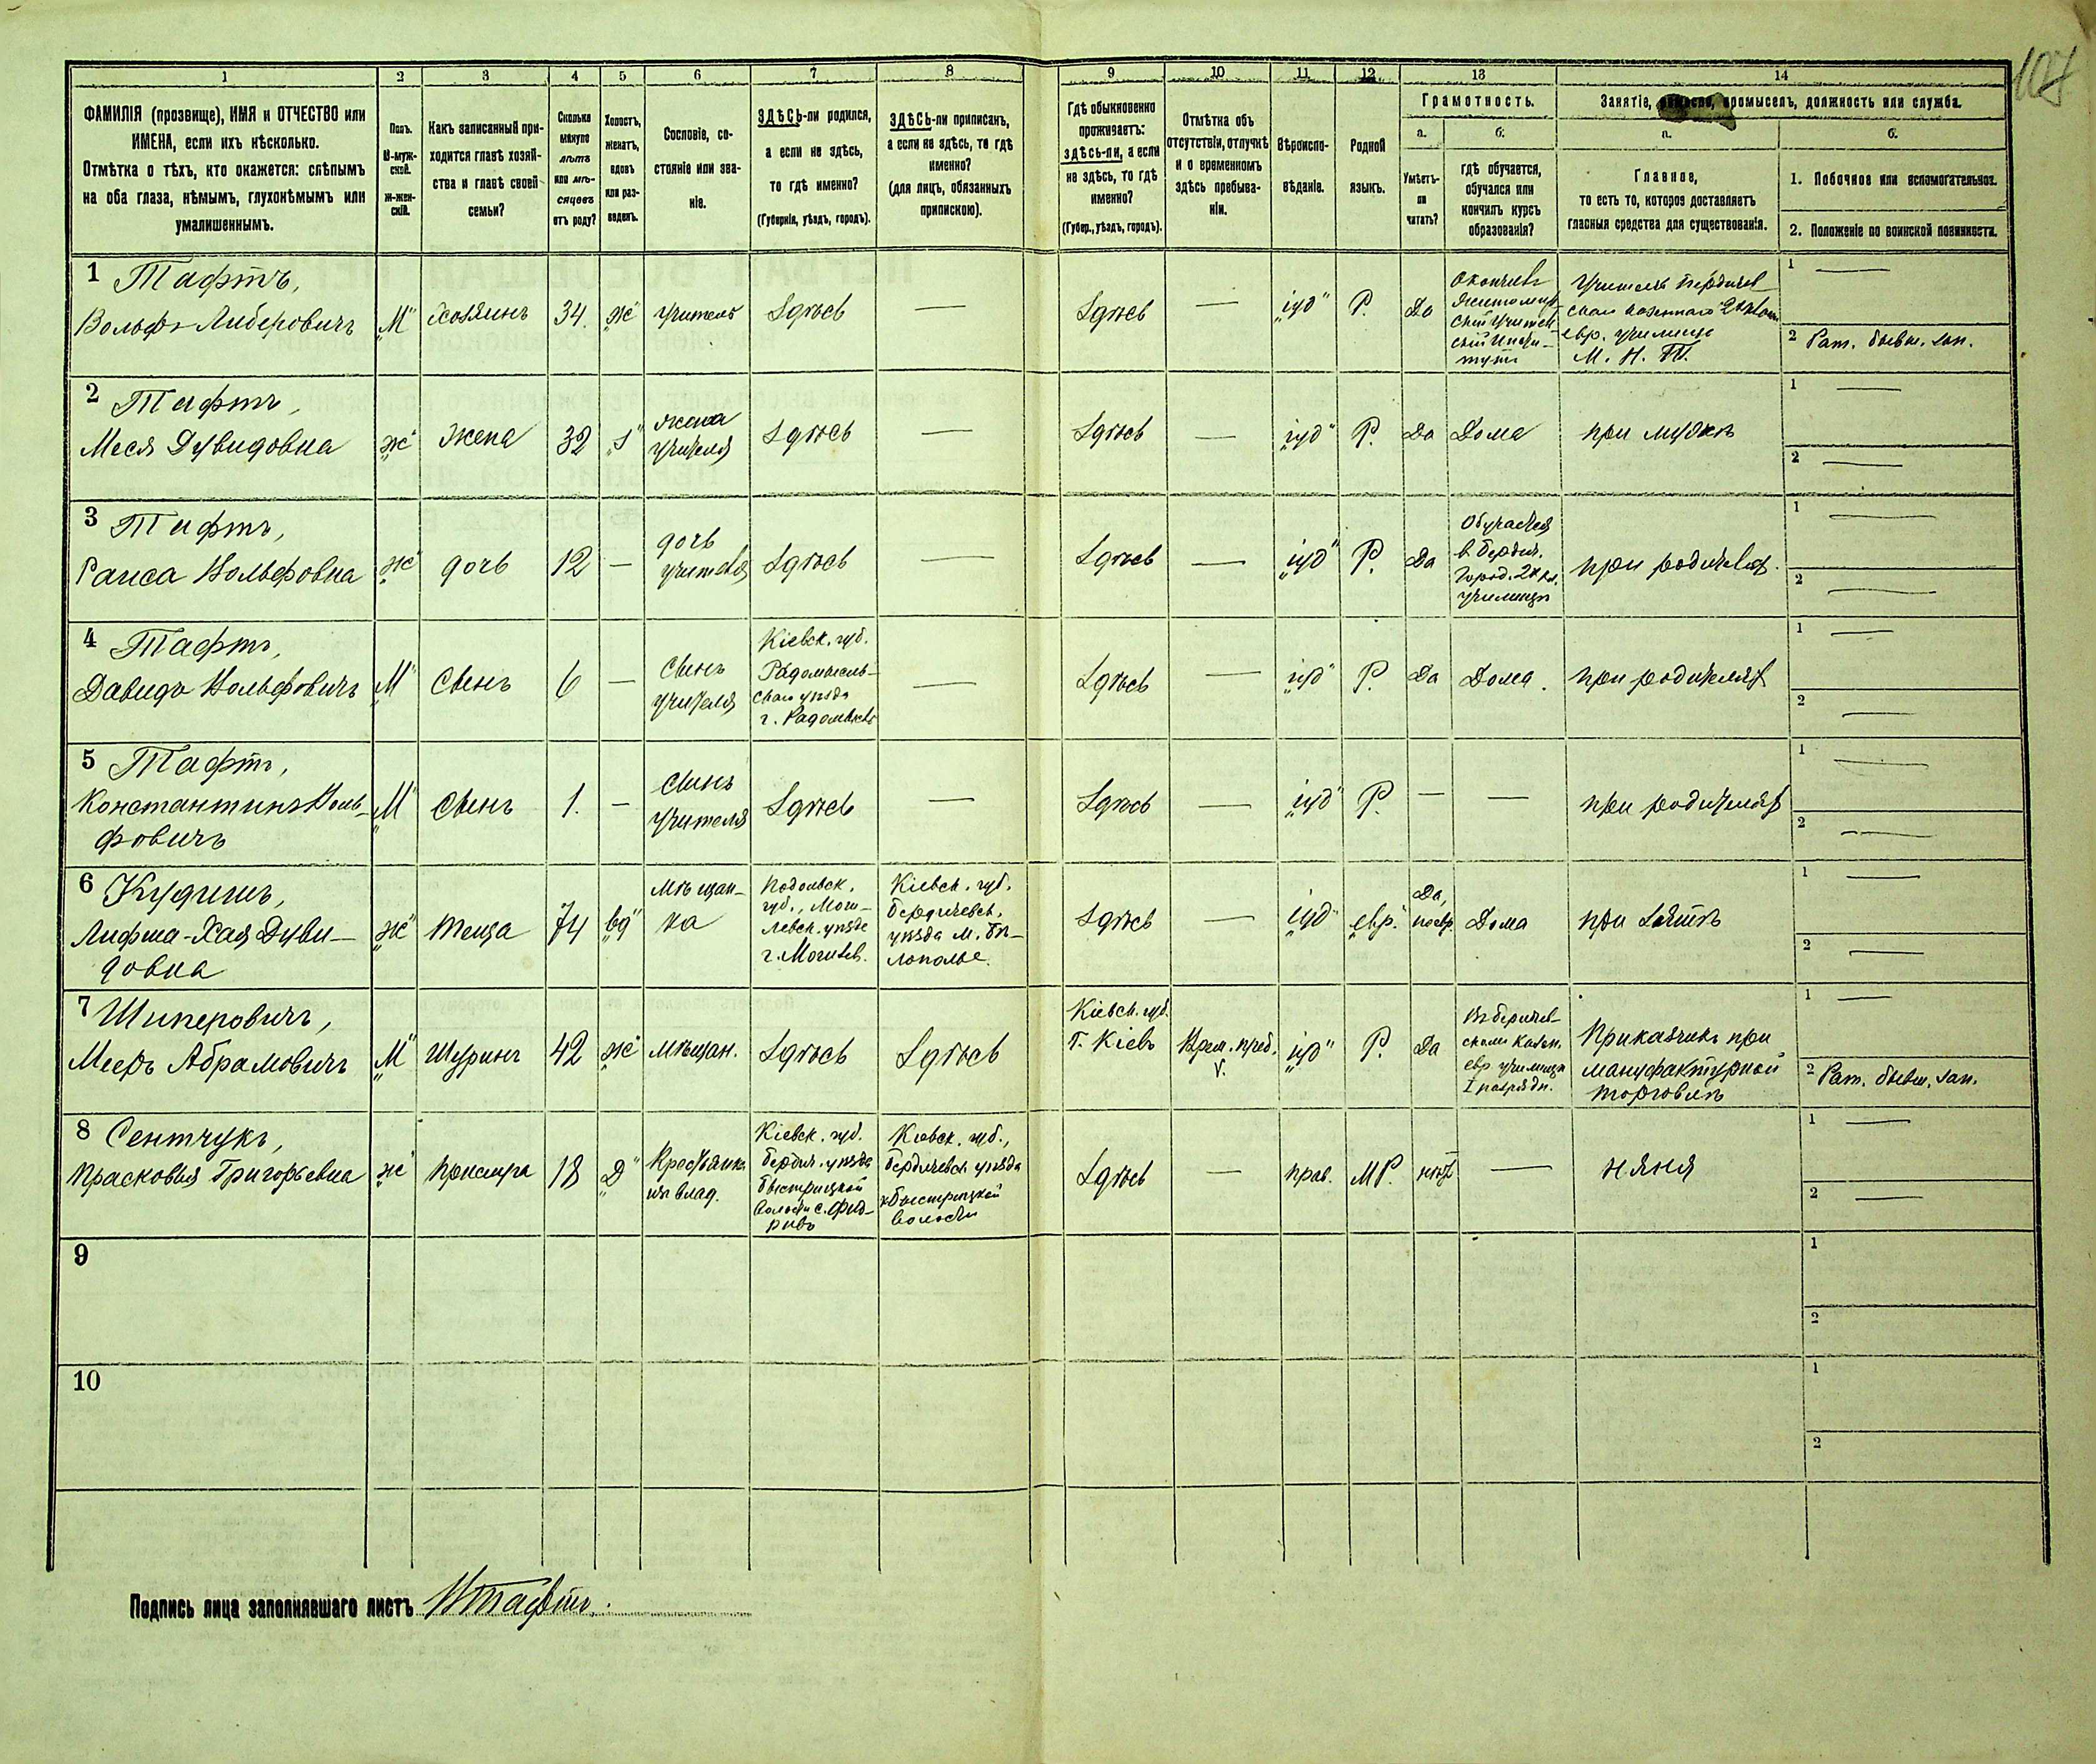 107
1 2 3 4 5 6 7 8 9 10 11 12 13 14
ФАМИЛІЯ (прозвище), ИМЯ и ОТЧЕСТВО или
ИМЕНА, если ихъ нѣсколько.
Отмѣтка о тѣхъ, кто окажется: слѣпымъ
на оба глаза, нѣмымъ, глухонѣмымъ или
умалишеннымъ.
Полъ.
М-муж-
ской.
Ж-жен-
скій.
Какъ записанный при-
ходится главѣ хозяй-
ства и главѣ своей
семьи?
Сколько
минуло
лѣтъ
или мѣ-
сяцевъ
отъ роду?
Холостъ,
женатъ,
вдовъ
или раз-
веденъ.
Сословіе, со-
стояніе или зва-
ніе.
ЗДѢСЬ-ли родился,
а если не здѣсь,
то гдѣ именно?
(Губернія, уѣздъ, городъ).
ЗДѢСЬ-ли приписанъ,
а если не здѣсь, то гдѣ
именно?
(для лицъ, обязанныхъ
припискою).
Гдѣ обыкновенно
проживаетъ:
здѣсь-ли, а если
не здѣсь, то гдѣ
именно?
(Губер., уѣздъ, городъ).
Отмѣтка объ
отсутствіи, отлучкѣ
и о временномъ
здѣсь пребыва-
ніи.
Вѣроиспо-
вѣданіе.
Родной
языкъ.
Грамотность.
а.
Умѣетъ-
ли
читать?
б.
гдѣ обучается,
обучался или
кончилъ курсъ
образованія?
Занятіе, промыселъ, должность или служба.
а.
Главное,
то есть то, которое доставляетъ
главныя средства для существованія.
б.
1. Побочное или вспомогательное.
2. Положеніе по воинской повинности.
1 Тафтъ,
Вольфъ Либеровичъ
„М“
Хозяинъ
34.
„ж“
учитель
Здѣсь
—
Здѣсь
—
„іуд“
Р.
Да
Окончилъ
Житомир-
скій Учитель-
скій Инсти-
тутъ
Учитель Бердичев-
скаго казеннаго 2хклас.
евр. училища
М. Н. П.
1 —
2 Рат. бывш. зап.
2 Тафтъ,
Меся Дувидовна
„ж“
Жена
32
„з“
жена
учителя
Здѣсь
—
Здѣсь
—
„іуд“
Р.
Да
Дома
при мужѣ
1 —
2 —
3 Тафтъ,
Раиса Вольфовна
„ж“
дочь
12
—
дочь
учителя
Здѣсь
—
Здѣсь
—
„іуд“
Р.
Да
Обучается
въ Бердич.
город. 2хкл.
училищѣ
при родителяхъ.
1 —
2 —
4 Тафтъ,
Давидъ Вольфовичъ
„М“
Сынъ
6
—
Сынъ
учителя
Кіевск. губ.
Радомысль-
скаго уѣзда
г. Радомысль
—
Здѣсь
—
„іуд“
Р.
Да
Дома.
при родителяхъ
1 —
2 —
5 Тафтъ,
Константинъ Воль-
фовичъ
„М“
Сынъ
1.
—
Сынъ
учителя
Здѣсь
—
Здѣсь
—
„іуд“
Р.
—
—
при родителяхъ
1 —
2 —
6 Кудишъ,
Лифша-Хая Дуви-
довна
„ж“
теща
74
„вд“
Мѣщан-
ка
Подольск.
губ., Моги-
левск. уѣзда
г. Могилев.
Кіевск. губ.
Бердичевск.
уѣзда м. Бѣ-
лополье.
Здѣсь
—
„іуд“
„евр.“
Да,
поевр.
Дома
при зятѣ
1 —
2 —
7 Шиперовичъ,
Мееръ Абрамовичъ
„М“
Шуринъ
42
„ж“
мѣщан.
Здѣсь
Здѣсь
Кіевск. губ.
г. Кіевъ
Врем. преб.
„іуд“
Р.
Да
Въ Бердичев-
скомъ казен.
евр училищѣ
I разряда.
Приказчикъ при
мануфактурной
торговлѣ
1 —
2 Рат. бывш. зап.
8 Сентчукъ,
Прасковья Григорьевна
„ж“
Прислуга
18
„Д“
Крестьянка
изъ влад.
Кіевск. губ.
Бердич. уѣзда
Быстрицкой
волости с.
Кіевск. губ.,
Бердичевск уѣзда
Быстрицкой
волости
Здѣсь
—
прав.
МР.
нѣтъ
—
няня
1 —
2 —
9
1
2
10
1
2
Подпись лица заполнявшаго листъ ВТафтъ.